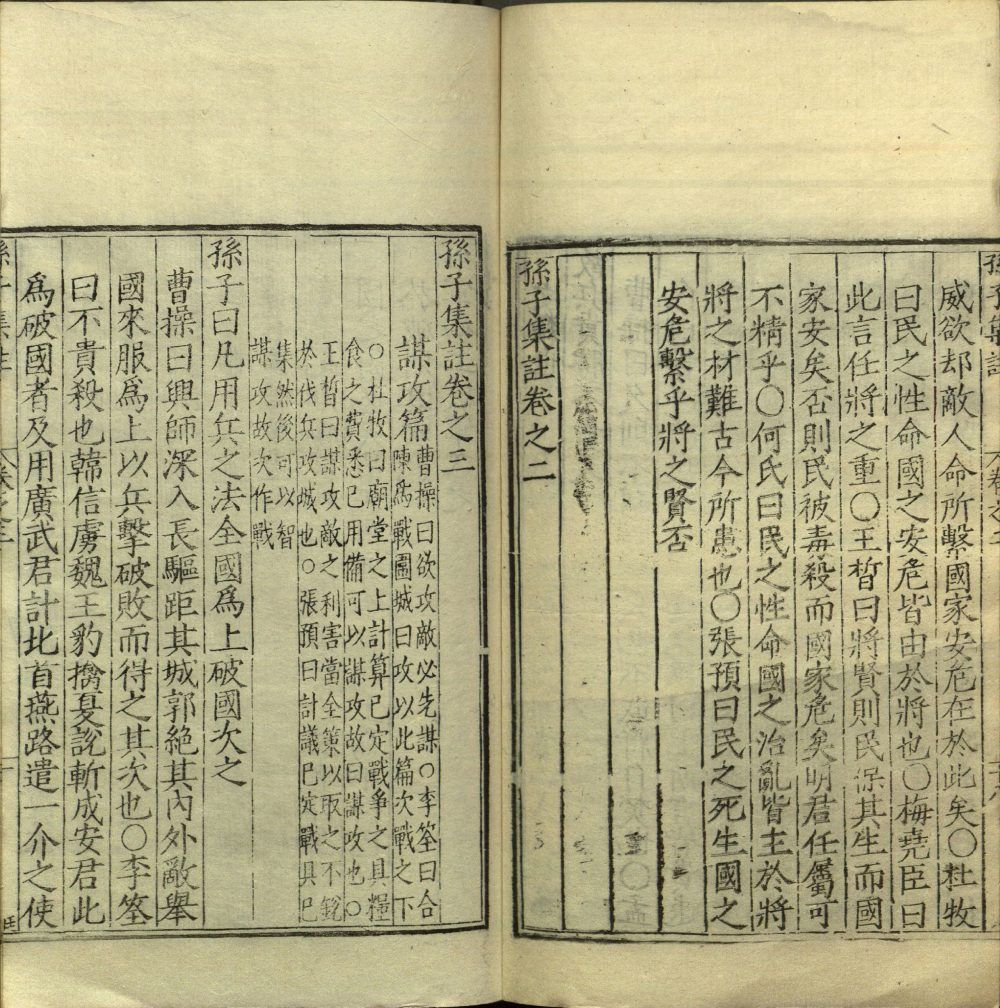 威欲却敵人命所繫國家安危在於此矣〇杜牧
曰民之性命國之安危皆由於將也〇梅堯臣曰
此言任將之重〇王晳曰將賢則民保其生而國
家安矣否則民被毒殺而國家危矣明君任屬可
不精乎〇何氏曰民之性命國之治亂皆主於將
將之材難古今所患也〇張預曰民之死生國之
安危繫乎將之賢否
孫子集註卷之二
孫子集註卷之三
謀攻篇
曹操曰欲攻敵必先謀〇李筌曰合
陳為戰圍城曰攻以此篇次戰之下
〇杜牧曰廟堂之上計算已定戰爭之具糧
食之費悉已用備可以謀攻故曰謀攻也〇
王晳曰謀攻敵之利害當全策以取之不銳
於伐兵攻城也〇張預曰計議已定戰具已
集然後可以智
謀攻故次作戰
孫子曰凡用兵之法全國為上破國次之
曹操曰興師深入長驅距其城郭絶其內外敵舉
國來服為上以兵擊破敗而得之其次也〇李筌
曰不貴殺也韓信虜魏王豹擒夏說斬成安君此
為破國者及用廣武君計北首燕路遣一介之使